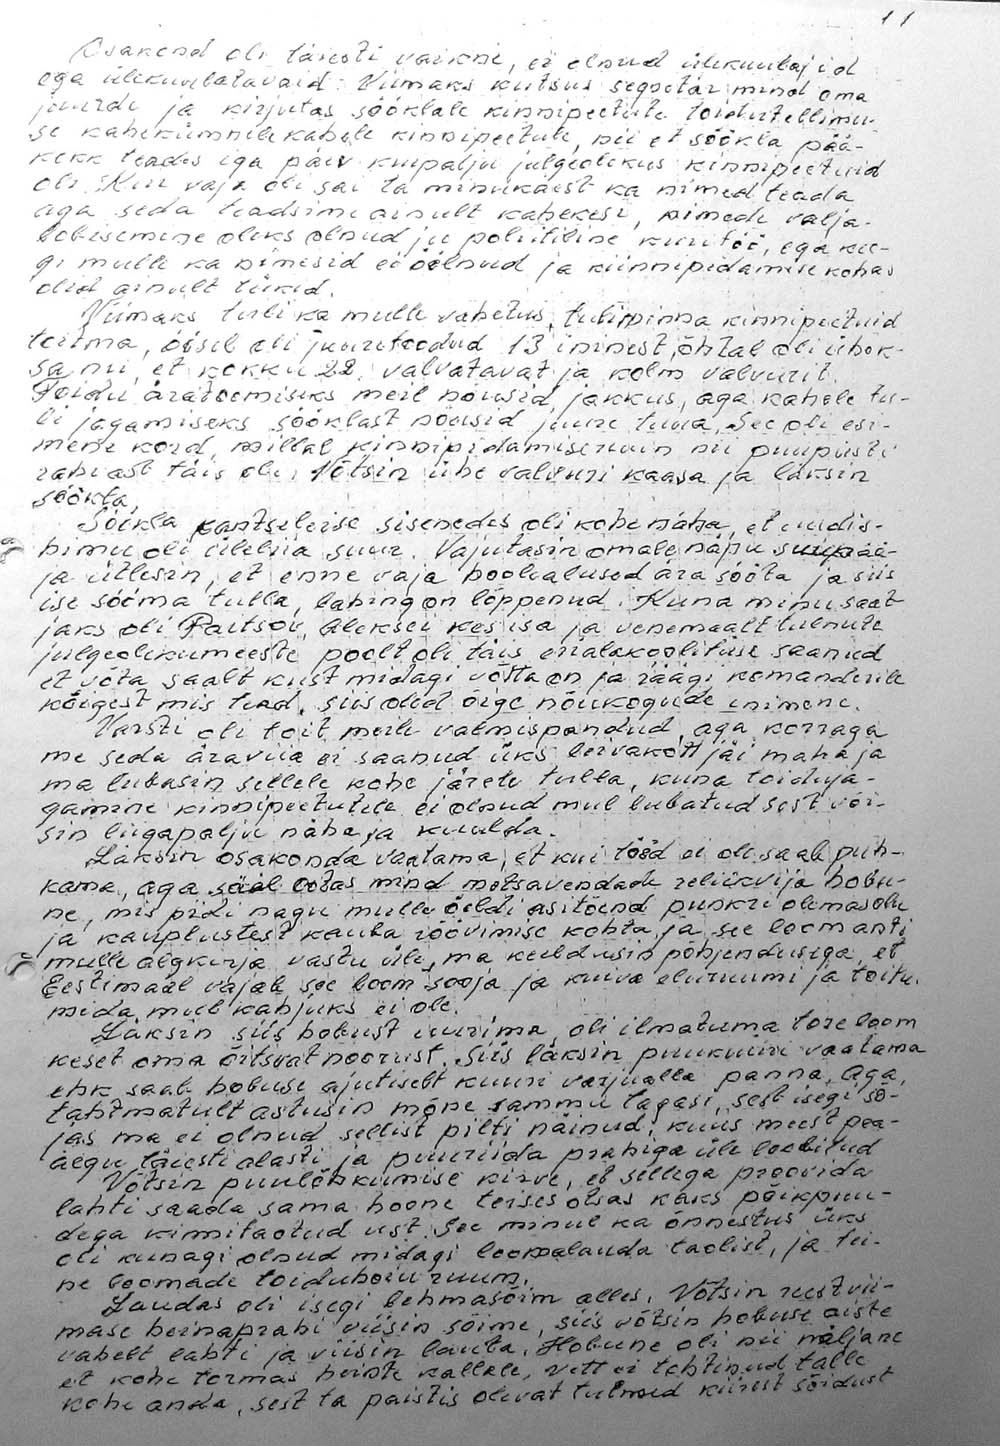 11
Osakond oli täiesti vaikne, ei olnud ülekuulajaid
ega ülekuulatavaid. Viimaks kutsus segretär mind oma
juurde ja kirjutas sööklale kinnipeetute toidutellimu-
se kahekümnele kahele kinnipeetule, nii et söökla pää-
kokk teades iga päiv kuipalju julgeolekus kinnipeetuid
oli. Kui vaja oli sai ta minukäest ka nimed teada
aga seda teadsime ainult kahekesi, nimede välja-
lobisemine oleks olnud ju poliitiline kuritöö, ega kee-
gi mulle ka nimesid ei öölnud ja kiinnipidamise kohas
olid ainult tükid.
Viimaks tuli ka mulle vahetus, tuli minna kinnipeetuid
toitma, öösel oli juuretoodud 13 inimest, õhtal oli ühek-
sa nii, et kokku 22 valvatavat ja kolm valvurit.
Toidu äratoomiseks meil nõusid jakkus, aga kahele tu-
li jagamiseks sööklast nõusid juure tuua. See oli esi-
mene kord, millal kinnipidamiseruum nii puupüsti
rahvast täis oli. Võtsin ühe valvuri kaasa ja läksin
söökla.
Söökla kantseleise sisenedes oli kohe näha, et uudis-
himu oli üleliia suur. Vajutasin omale näpu suupää-
ja ütlesin, et enne vaja hoolealused ära sööta ja siis
ise sööma tulla, lahing on lõppenud. Kuna minu saat
jaks oli Raitsov, Aleksei kes isa ja venemaalt tulnute
julgeolekumeeste poolt oli täis erialakoolituse saanud
et võta säält kust midagi võtta on ja räägi komanderile
kõigest mis tead, siis oled õige nõukogude inimene.
Varsti oli toit meile valmispandud, aga korraga
me seda äraviia ei saanud üks leivakott jäi maha ja
ma lubasin sellele kohe järele tulla, kuna toiduja-
gamine kinnipeetutele ei olnud mul lubatud sest või-
sin liigapalju näha ja kuulda.
Läksin osakonda vaatama, et kui tööd ei ole saab puh-
kama, aga sääl ootas mind metsavendade reliikvija hobu-
ne, mis pidi nagu mulle öeldi asitõend punkri olemasolu
ja kauplustest kauba röövimise kohta ja see loom anti
mulle algkirja vastu üle, ma keeldusin põhjendusega, et
Eestimaal vajab see loom sooja ja kuiva eluruumi ja toitu.
mida mul kahjuks ei ole.
Läksin siis hobust uurima, oli ilmatuma tore loom
keset oma õitsvat noorust. Siis läksin puukuuri vaatama
ehk saab hobuse ajutiselt kuuri varjualla panna, aga,
tahtmatult astusin mõne sammu tagasi, sest isegi sõ-
jas ma ei olnud sellist pilti näinud, kuus meest pea-
aegu täiesti alasti ja puuriida prahiga üle loobitud
Võtsin puulõhkumise kirve, et sellega proovida
lahti saada sama hoone teises otsas kaks põikpuu-
dega kinnitaotud ust. See minul ka õnnestus üks
oli kunagi olnud midagi loomalauda taolist, ja tei-
ne loomade toiduhoiu ruum.
Laudas oli isegi lehmasõim alles. Võtsin reest vii-
mase heinaprahi viisin sõime, siis võtsin hobuse aiste
vahelt lahti ja viisin lauta. Hobune oli nii näljane
et kohe tormas heinte kallale, vett ei tahtinud talle
kohe anda, sest ta paistis olevat tulnud kiirest sõidust